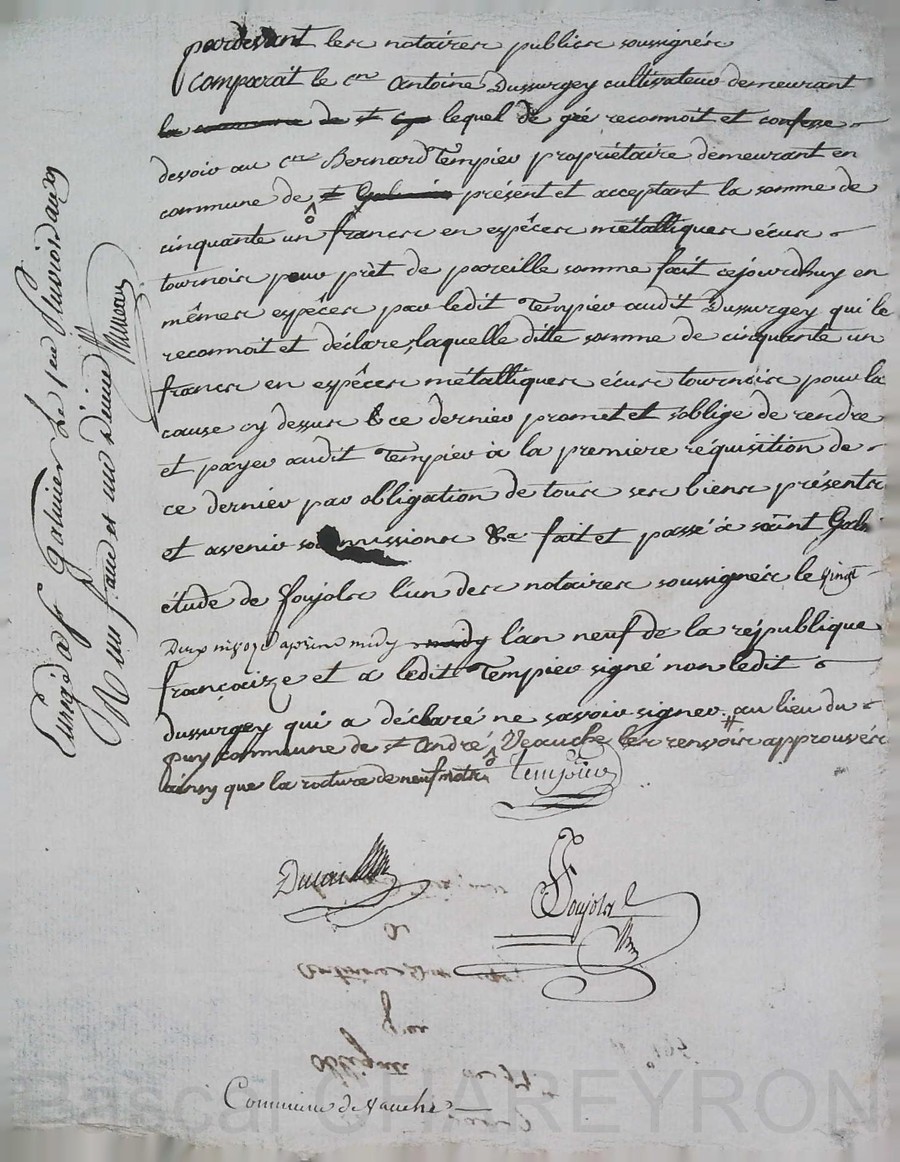 pardevant les notaires publics soussignés
Comparait le cen Antoine Dussurgey cultivateur demeurant
la commune de st Cyr lequel de gré reconnoit et confesse
devoir au cen Bernard Tempier propriétaire demeurant en
commune de st Galmier présent et acceptant la somme de
cinquante un francs en espêces métalliques écus
tournois pour prêt de pareille somme fait cejourdhuy en
mêmes espêces par ledit Tempier audit Dussurgey qui le
reconnoit et déclare, laquelle ditte somme de cinquante un
francs en espêces métalliques écus tournois pour la
cause cy dessus ce dernier promet et s'oblige de rendre
et payer audit Tempier à la premiere réquisition de
ce dernier par obligation de tous ses biens présents
et avenir soumissions &a fait et passé à saint Galm
étude de Foujols l'un des notaires soussignés le vingt
deux nivose après midy midy l'an neuf de la république
françoise et a ledit Tempier signé non ledit
dussurgey qui a déclaré ne savoir signer. # au lieu du
puy commune de st André ô Veauche les renvois approuvés
ainsy que la roture de neuf mots
tempier
Foujols
Commune de Vauche
Enregé à st Galmier le 1er Pluviose an 9
R un franc et un décime